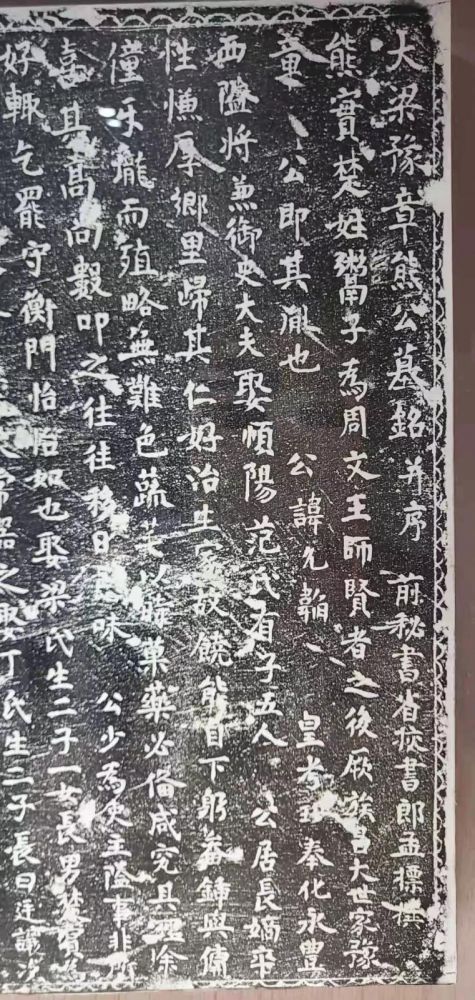 大梁豫章熊公墓銘并序 前秘書省校書郎孟摽撰
熊實楚姓鬻子為周文王師賢者之後厥族昌大世家豫
章公即其胤也 公諱允韜 皇考 奉化永豊
西隘將兼御史大夫娶順陽范氏有子五人 公居長嫡卒
性慊厚鄉里歸其仁好治生 故饒能自下躬畚鍤與傭
僮斥壠而殖略無難色蔬 以 菓藥必偹咸究其 余
嘉其高尚數叩之往往移日 味 公少為 主隘事非所
好輒乞罷守衡門怡怡如也娶梁氏生二子一女長男
之娶丁氏生二子長曰廷 次